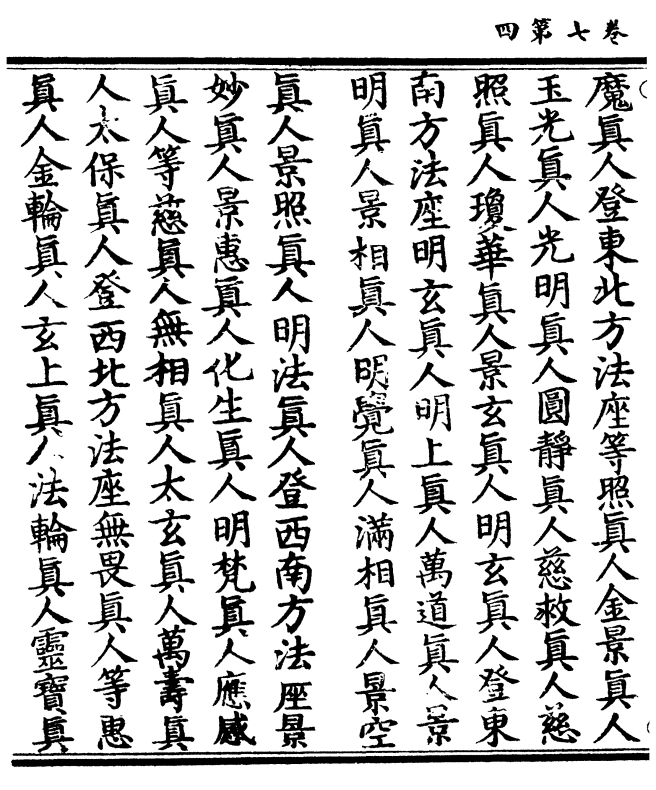 卷七第四
魔眞人登東北方法座等照眞人金景眞人
玉光眞人光明眞人圓靜眞人慈救眞人慈
照眞人瓊華眞人景玄眞人明玄眞人登東
南方法座明玄眞人明上眞人萬道眞人景
明眞人景相眞人明覺眞人滿相眞人景空
眞人景照眞人明法眞人登西南方法座景
妙眞人景惠眞人化生眞人明梵眞人應感
眞人等慈眞人無相眞人太玄眞人萬壽眞
人太保眞人登西北方法座無畏眞人等惠
眞人金輪眞人玄上眞人法輪眞人靈寶眞